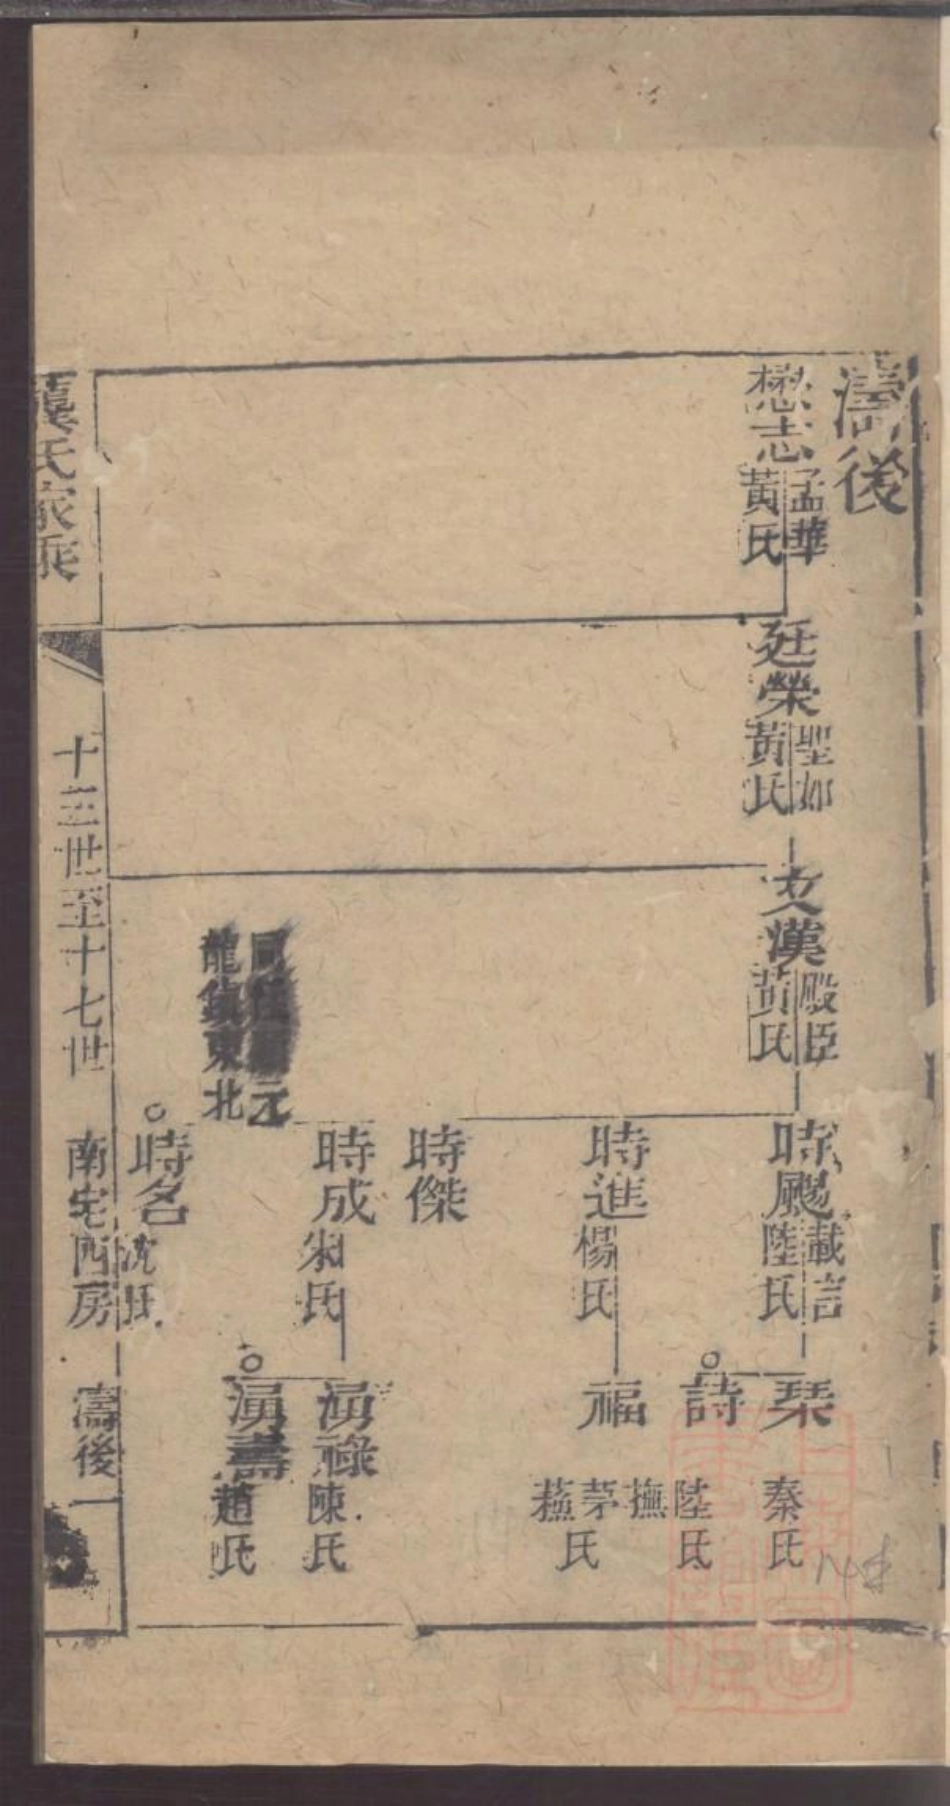 濤後
懋志
孟華
黃氏
廷榮
聖如
黃氏
文漢
殿臣
黃氏
時颺
載言
陸氏
時進
楊氏
時傑
時成
朱氏
時名
沈氏
元
龍鎮東北
琹
秦氏
詩
陸氏
撫
福
茅氏
蓀
湧祿
陳氏
湧壽
趙氏
龔氏家乘
十三世至十七世
南宅西房
濤後一